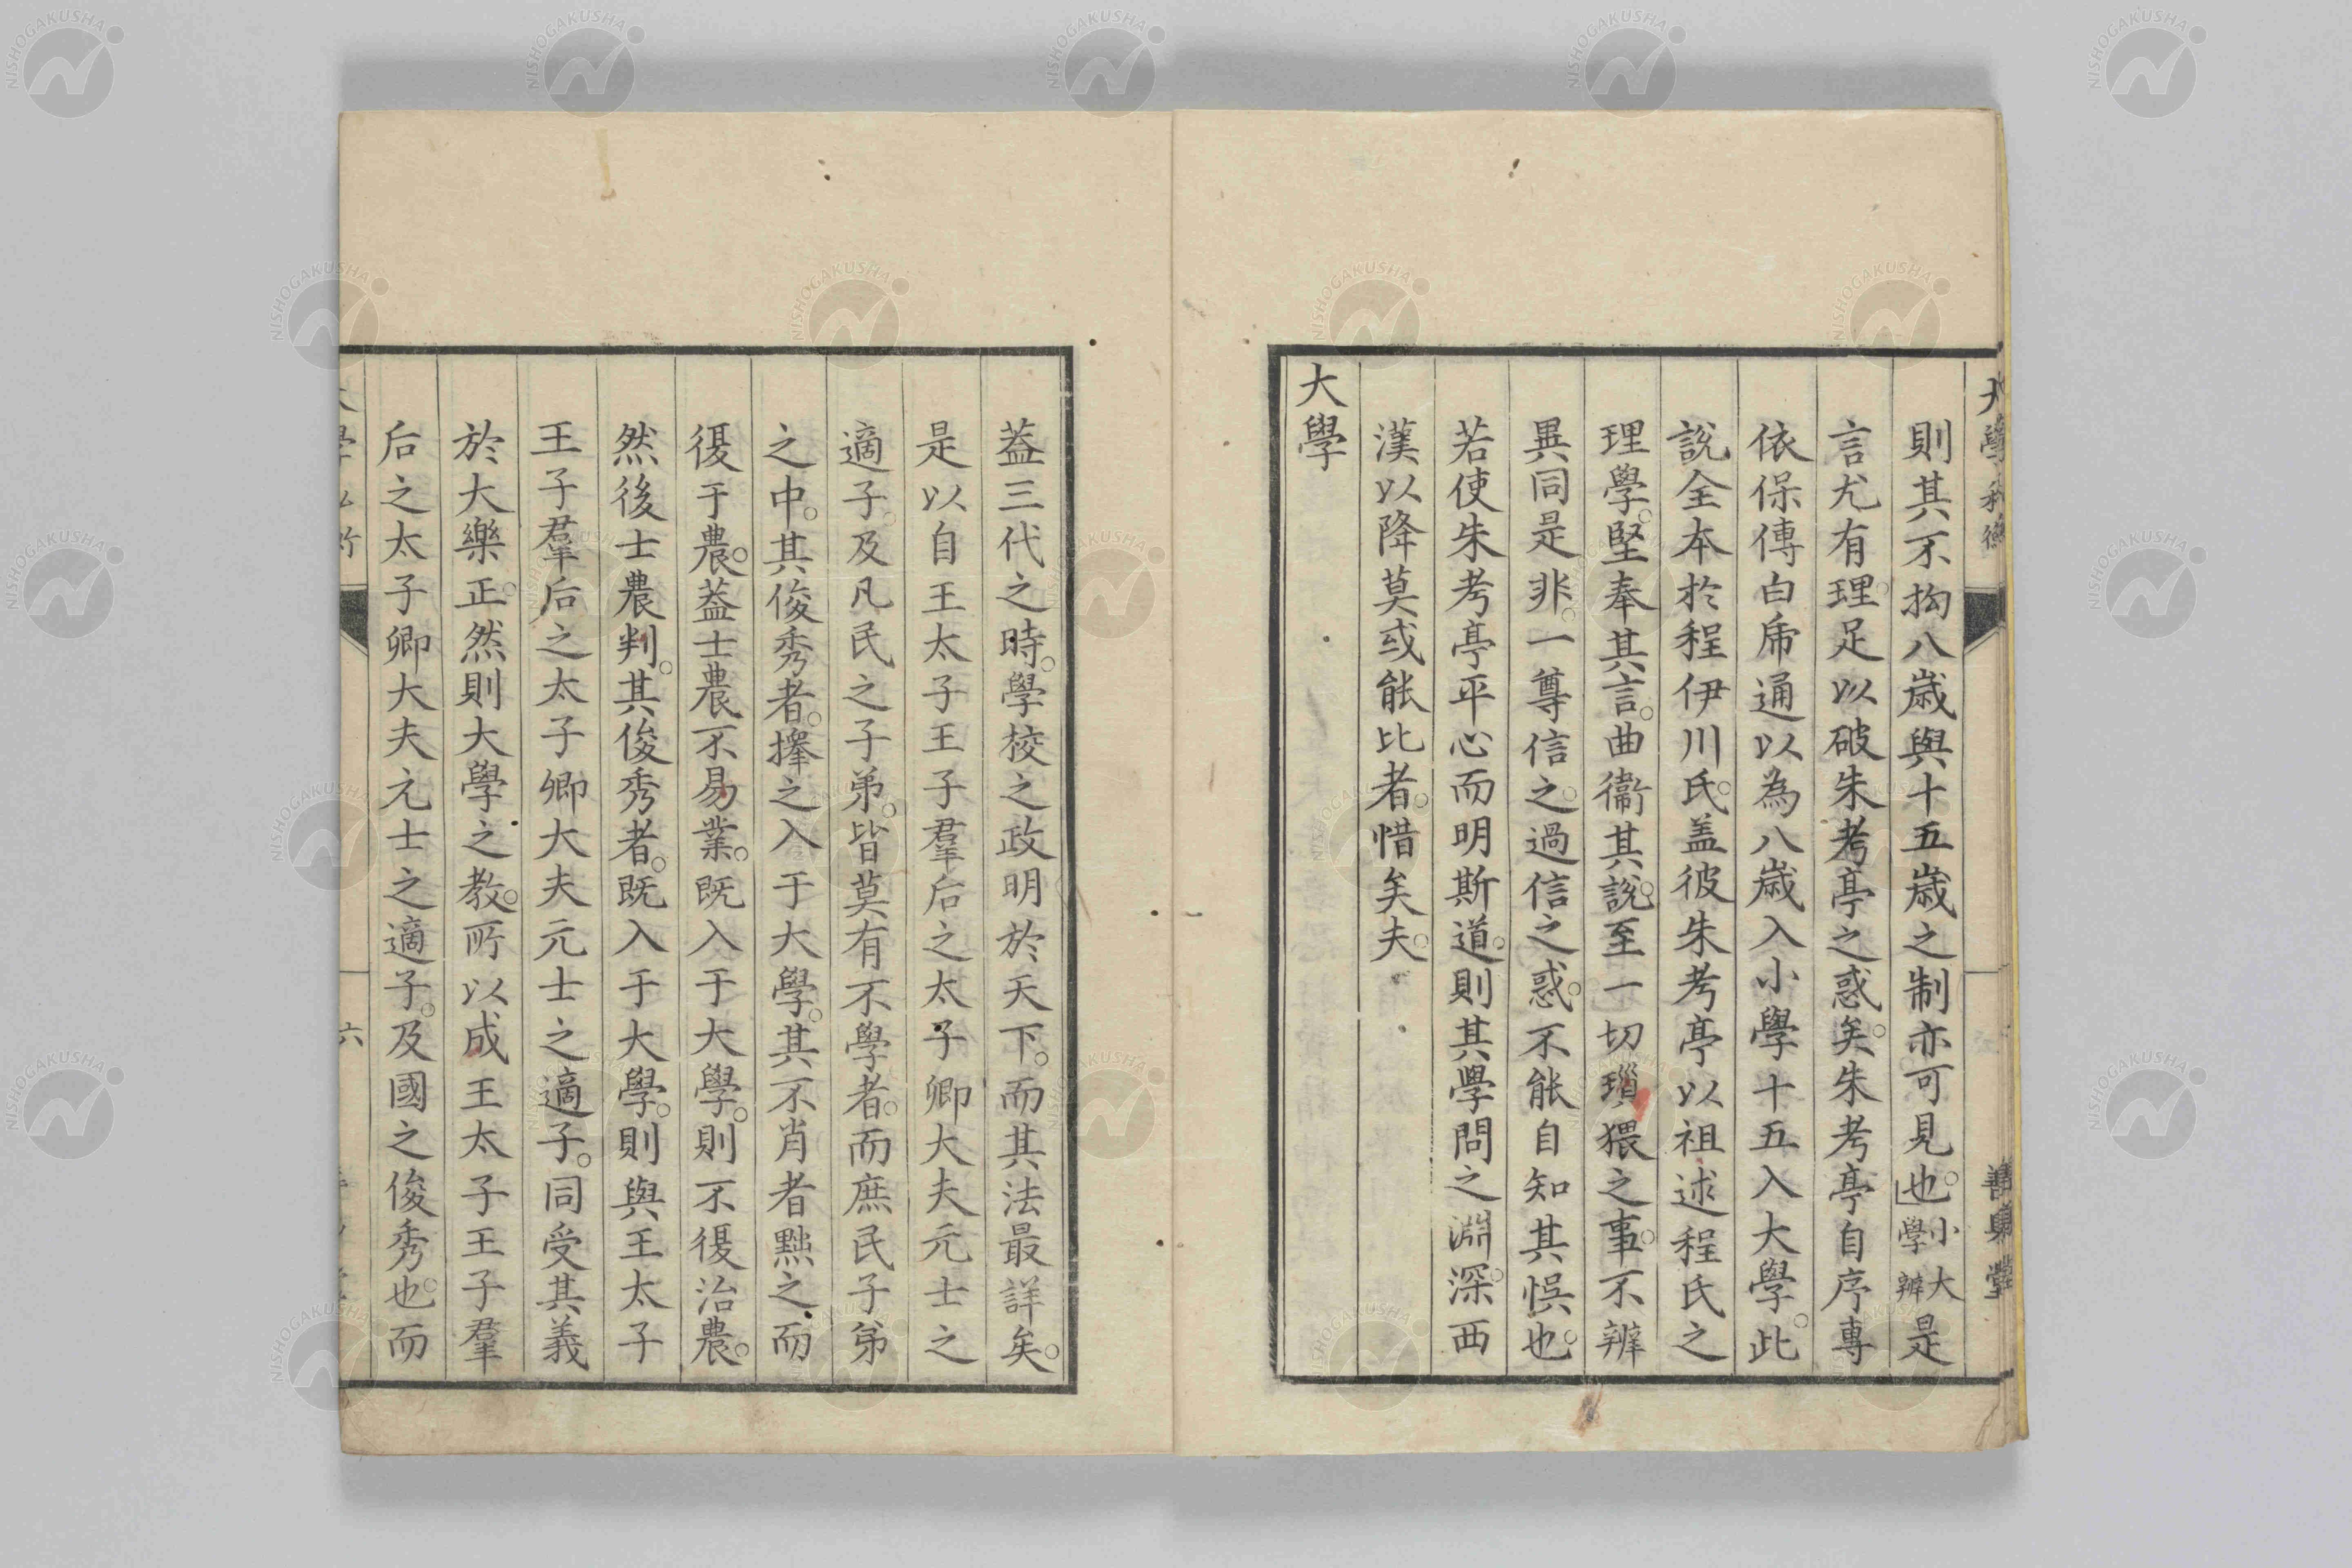 則其不拘八歳與十五歳之制亦可見也。小大學辨是
言尤有理。足以破朱考亭之惑矣。朱考亭自序專
依保傅白虎通以為八歳入小學十五入大學。此
說全本於程伊川氏。盖彼朱考亭以祖述程氏之
理學。堅奉其言。曲衞其說。至一切瑣猥之事。不辨
異同是非。一尊信之。過信之惑。不能自知其悞也。
若使朱考亭平心而明斯道。則其學問之淵深。西
漢以降莫或能比者。惜矣夫。
大學
蓋三代之時。學校之政明於天下。而其法最詳矣。
是以自王太子王子羣后之太子卿大夫元士之
適子。及凡民之子弟。皆莫有不學者。而庶民子弟
之中。其俊秀者。擇之入于大學。其不肖者黜之而
復于農。蓋士農不易業。既入于大學。則不復治農。
然後士農判。其俊秀者。既入于大學。則與王太子
王子羣后之太子卿大夫元士之適子。同受其義
於大樂正。然則大學之教。所以成王太子王子羣
后之太子卿大夫元士之適子。及國之俊秀也。而
六
NISHOGAKUSHA